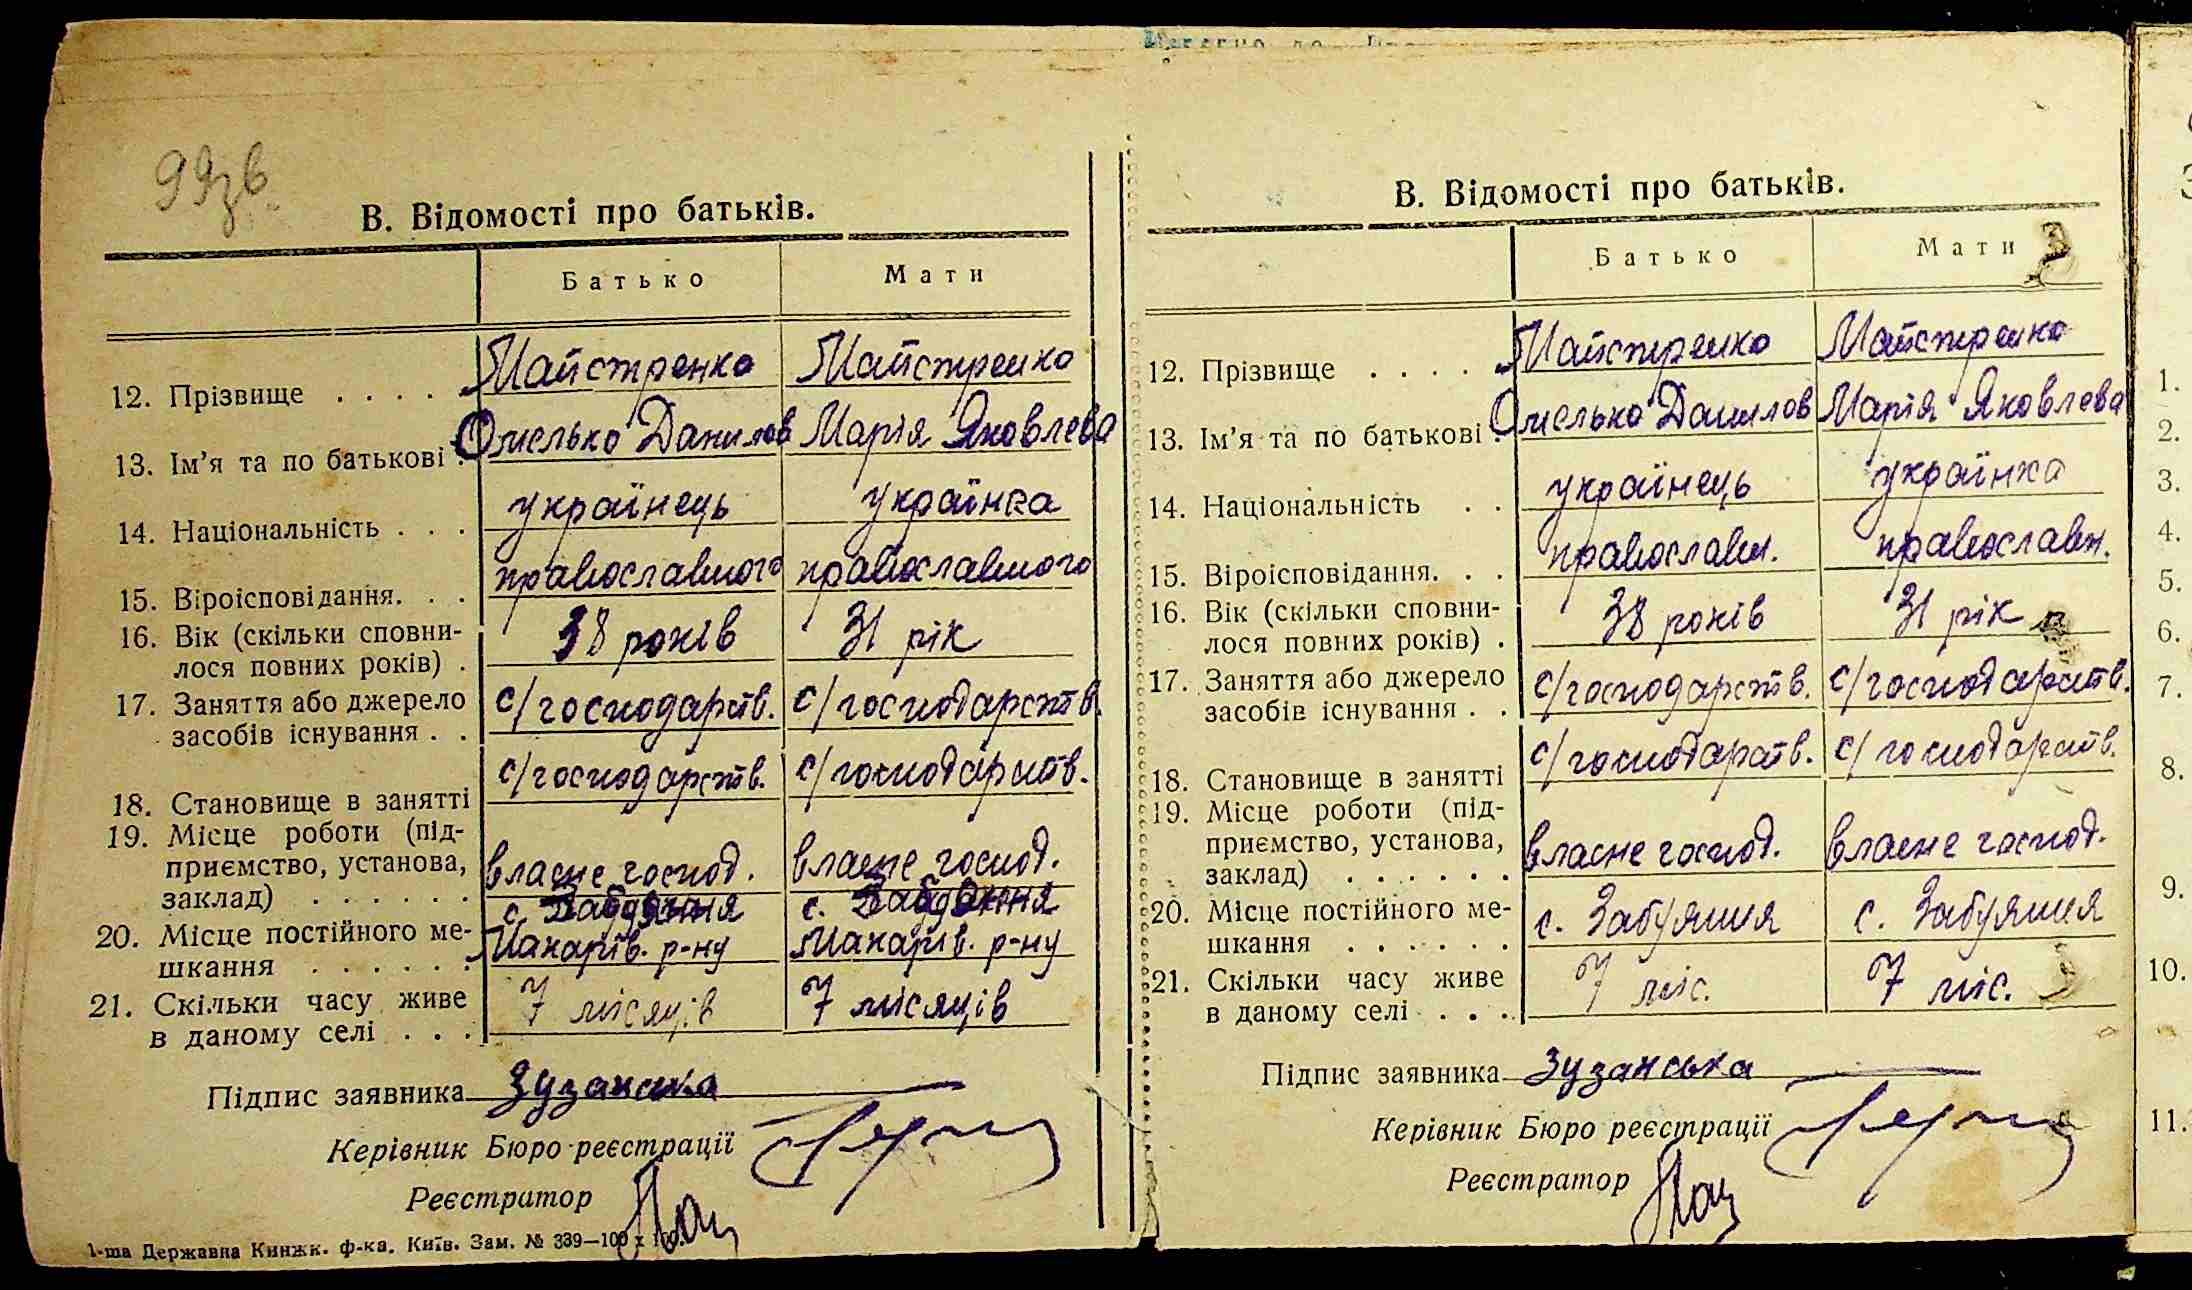 99зв
В. Відомості про батьків.
Батько Мати
12. Прізвище . . . . Майстренко Майстренко
13. Ім'я та по батькові . Омелько Данилов Марія Яковлева
14. Національність . . . українець українка
15. Віроісповідання. . . православного православного
16. Вік (скільки сповни-
лося повних років) . 38 років 31 рік
17. Заняття або джерело
засобів існування . . с/господарств. с/господарств.
18. Становище в занятті с/господарств. с/господарств.
19. Місце роботи (під-
приємство, установа,
заклад) . . . . . . власне господ. власне господ.
20. Місце постійного ме- с. Забуяння с. Забуяння
шкання . . . . . . Макарів. р-ну Макарів. р-ну
21. Скільки часу живе
в даному селі . . . 7 місяців 7 місяців
Підпис заявника Зузанська
Керівник Бюро реєстрації
Реєстратор
1-ша Державна Книжк. ф-ка. Київ. Зам. № 339—100
В. Відомості про батьків.
Батько Мати
12. Прізвище . . . . Майстренко Майстренко
13. Ім'я та по батькові . Омелько Данилов Марія Яковлева
14. Національність . . українець українка
15. Віроісповідання. . . православн. православн.
16. Вік (скільки сповни-
лося повних років) . 38 років 31 рік
17. Заняття або джерело
засобів існування . . с/господарств. с/господарств.
18. Становище в занятті с/господарств. с/господарств.
19. Місце роботи (під-
приємство, установа,
заклад) . . . . . . власне господ. власне господ.
20. Місце постійного ме-
шкання . . . . . . с. Забуяння с. Забуяння
21. Скільки часу живе
в даному селі . . . 7 міс. 7 міс.
Підпис заявника Зузанська
Керівник Бюро реєстрації
Реєстратор
1.
2.
3.
4.
5.
6.
7.
8.
9.
10.
11.